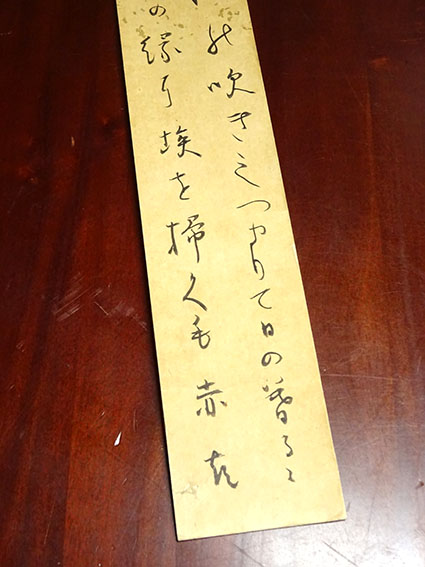 の吹きしつまりて日の暮るゝ
の縁の埃を掃くも 赤彦